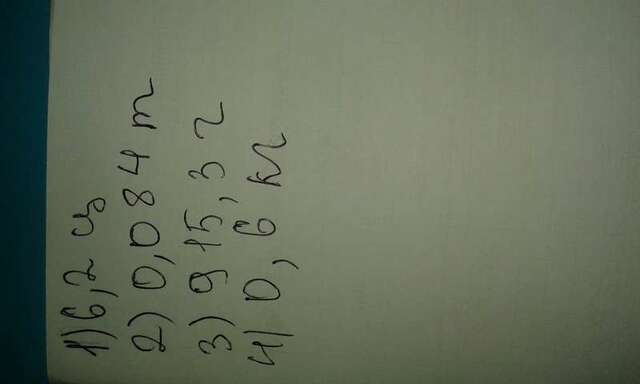 1) 6,2 ц
2) 0,084 т
3) 915,3 г
4) 0,6 кг